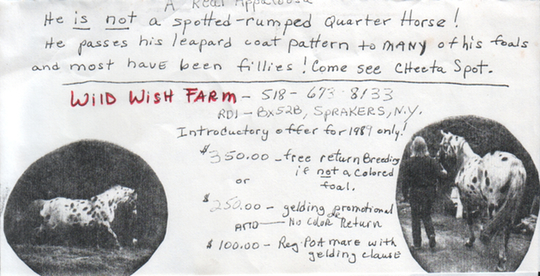 A Real Appaloosa
He is not a spotted-rumped Quarter Horse!
He passes his leapard coat pattern to MANY of his foals
and most have been fillies! Come see CHeeta Spot.
WilD WisH FARM - 518-673-8133
RD1 - Bx52B, SPRAKERS, N.Y.
Introductory offer for 1989 only!
$350.00 - free return Breeding
if not a colored
foal.
or
$250.00 - gelding promotional
AND - No Color Return
$100.00 - Reg. POA mare with
gelding clause